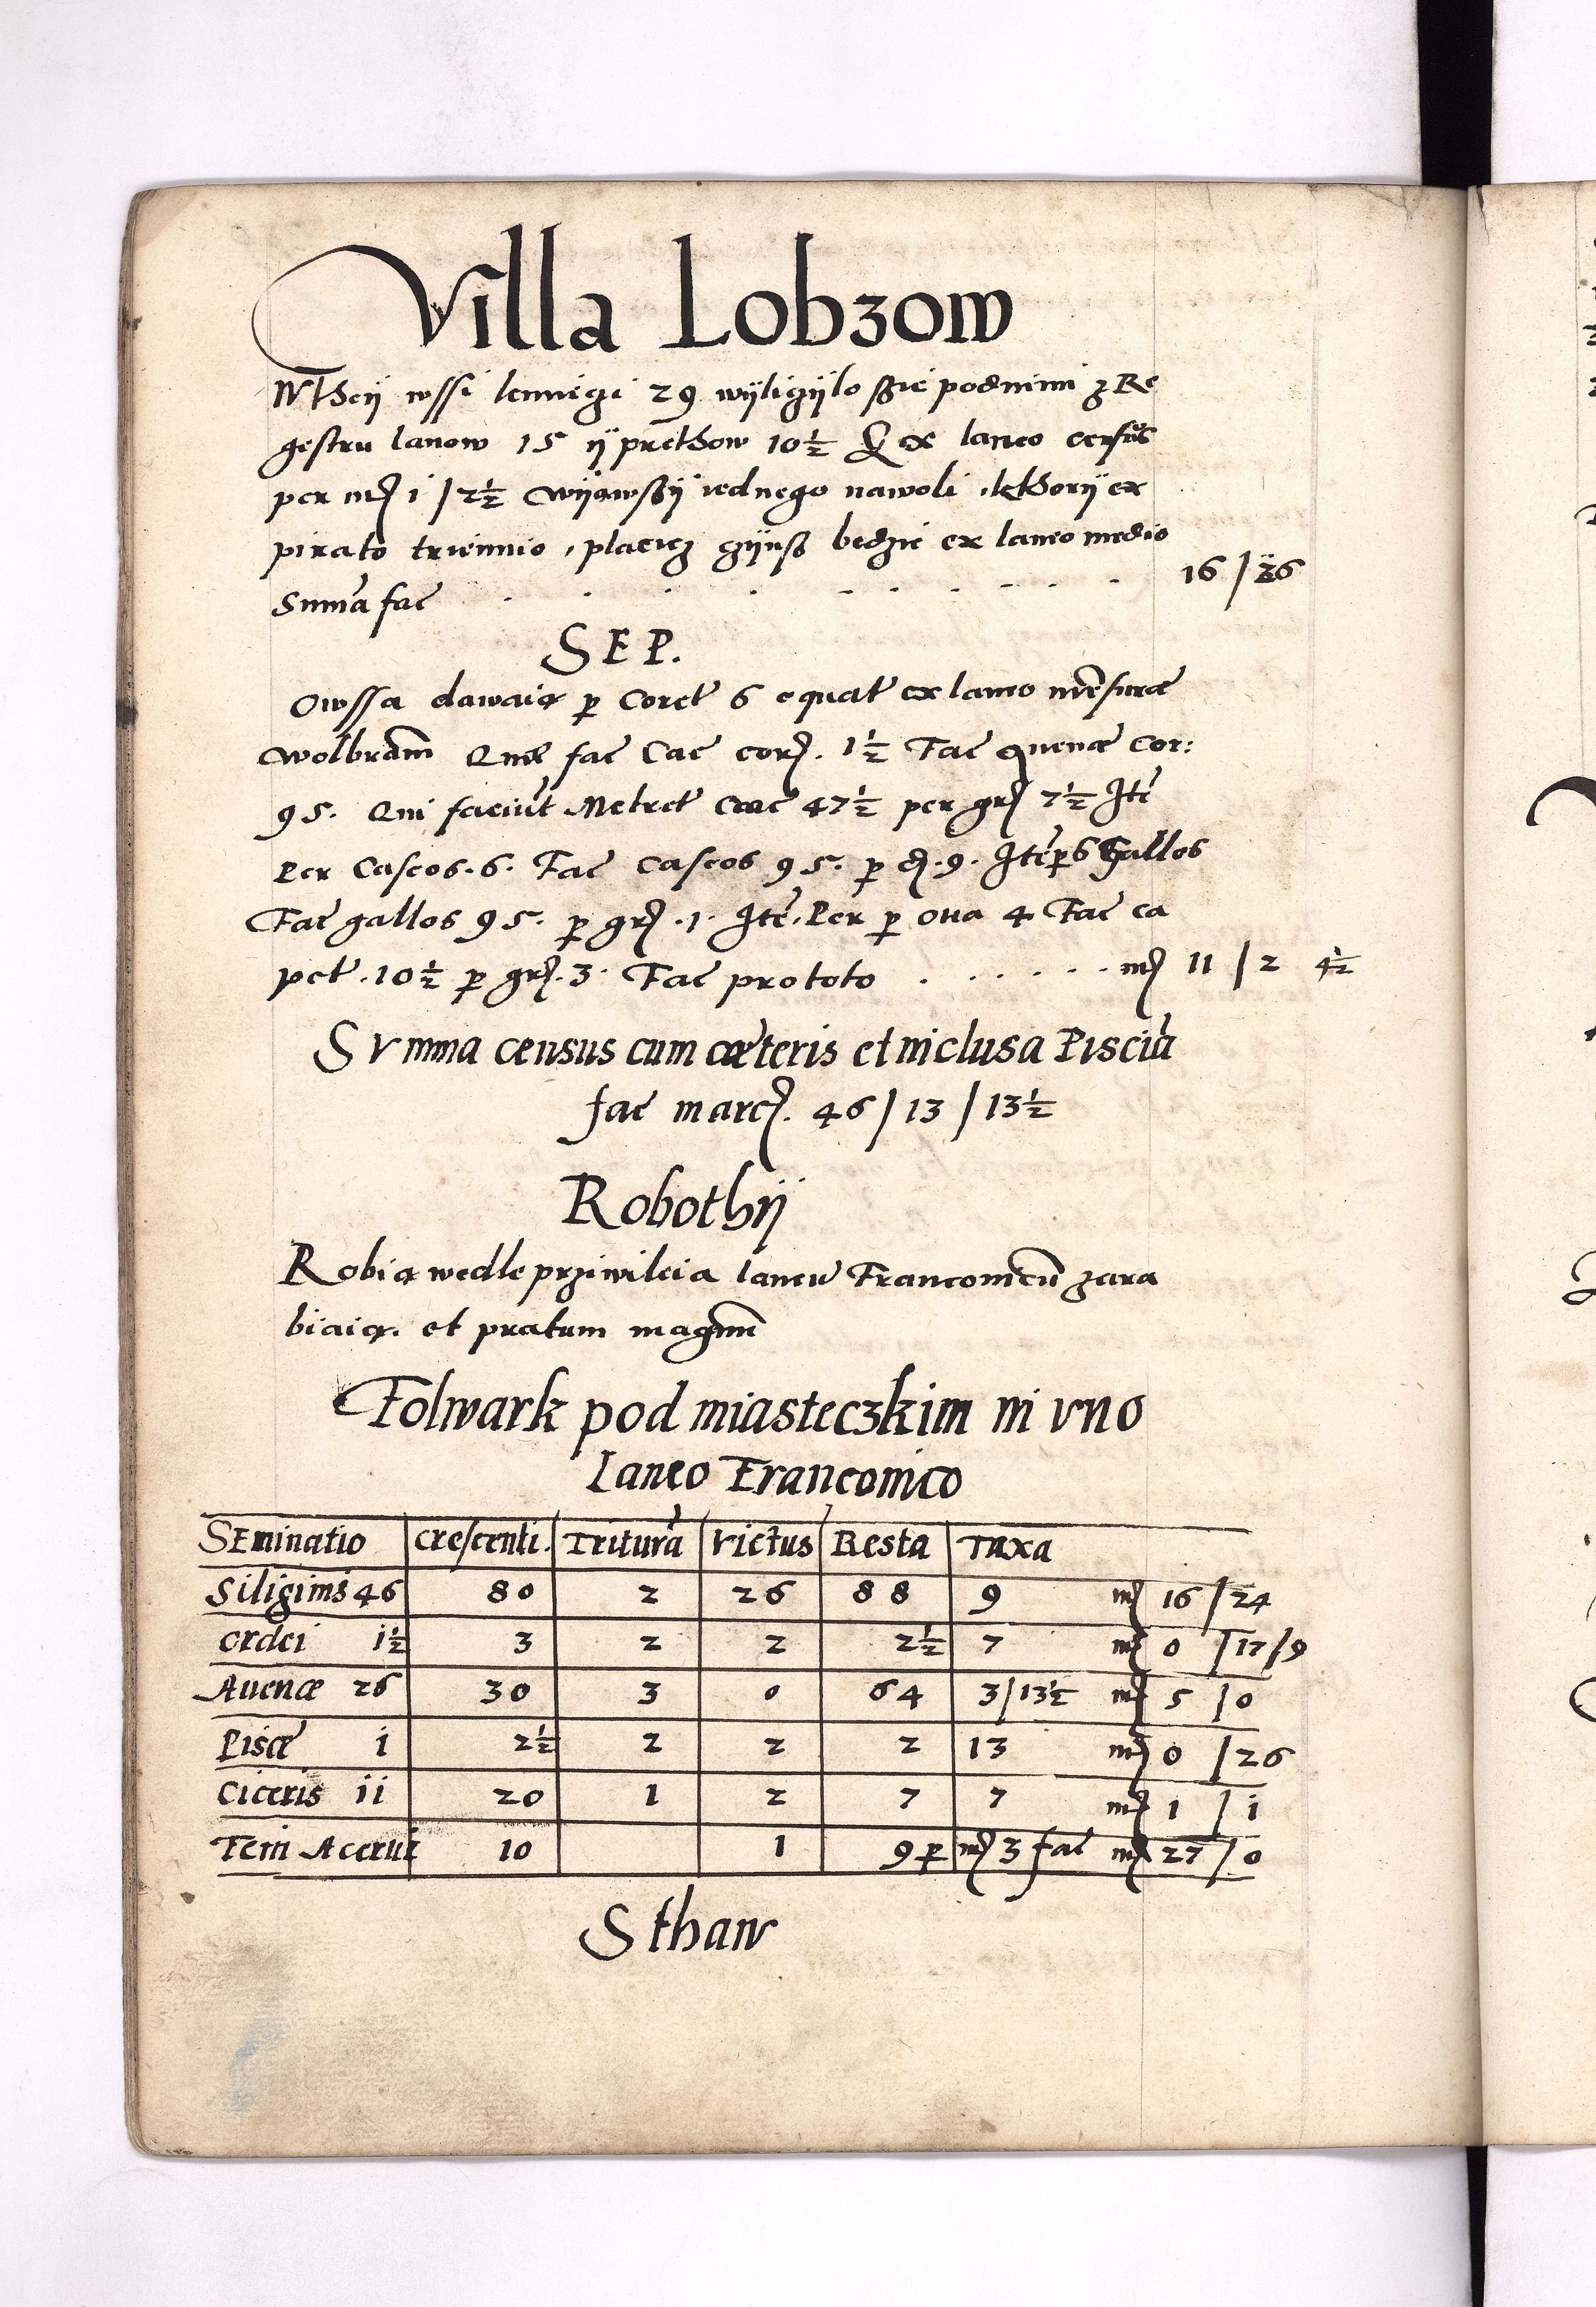 Villa Lobzow
Wtheÿ wssi kmieczi 29 wÿliczÿlo szie podnimi z Re
gestru lanow 15 ÿ prethow 10½ & ex laneo census
per mr 1 / 2½ wÿawszÿ iednego nawoli, kthorÿ ex
pirato triennio, placicz czÿnsz bedzie ex laneo medio
Suma fac . . . . . . . . 16 / 26
SEP.
Owssa dawaią p Coret 6 equat ex laneo mensuræ
Wolbram Quæ fac Cac cor. 1½ Fac Avenæ Cor:
95. Qui faciut Metret Crac 47½ per gr 7½ Ite
Per Caseos. 6. Fac Caseos 95. p d. 9. Ite p 6 Gallos
Fac gallos 95. p gr. 1. Ite. Per p oua 4 Fac ca
pet. 10½ p gr. 3. Fac pro toto . . . . . . mr 11 / 2 4½
SVmma census cum cæteris et inclusa Piscia
fac marc. 46 / 13 / 13½
Robothÿ
Robią wedle prziwileia laneu Franconicu zara
biaią. et pratum magnu
Folwark pod miasteczkim in vno
Laneo Franconico
SEminatio Crescenti. Tritura Victus Resta Taxa
Siliginis 46 80 2 26 88 9 mr 16 / 24
ordei 1½ 3 2 2 2½ 7 mr 0 / 17 / 9
Auenæ 26 30 3 0 64 3/13½ mr 5 / 0
Pisæ 1 2½ 2 2 2 13 mr 0 / 26
Ciceris ii 20 1 2 7 7 mr 1 / i
Feni Acerui 10 1 9 p mr 3 fac mr 27 / 0
Sthaw